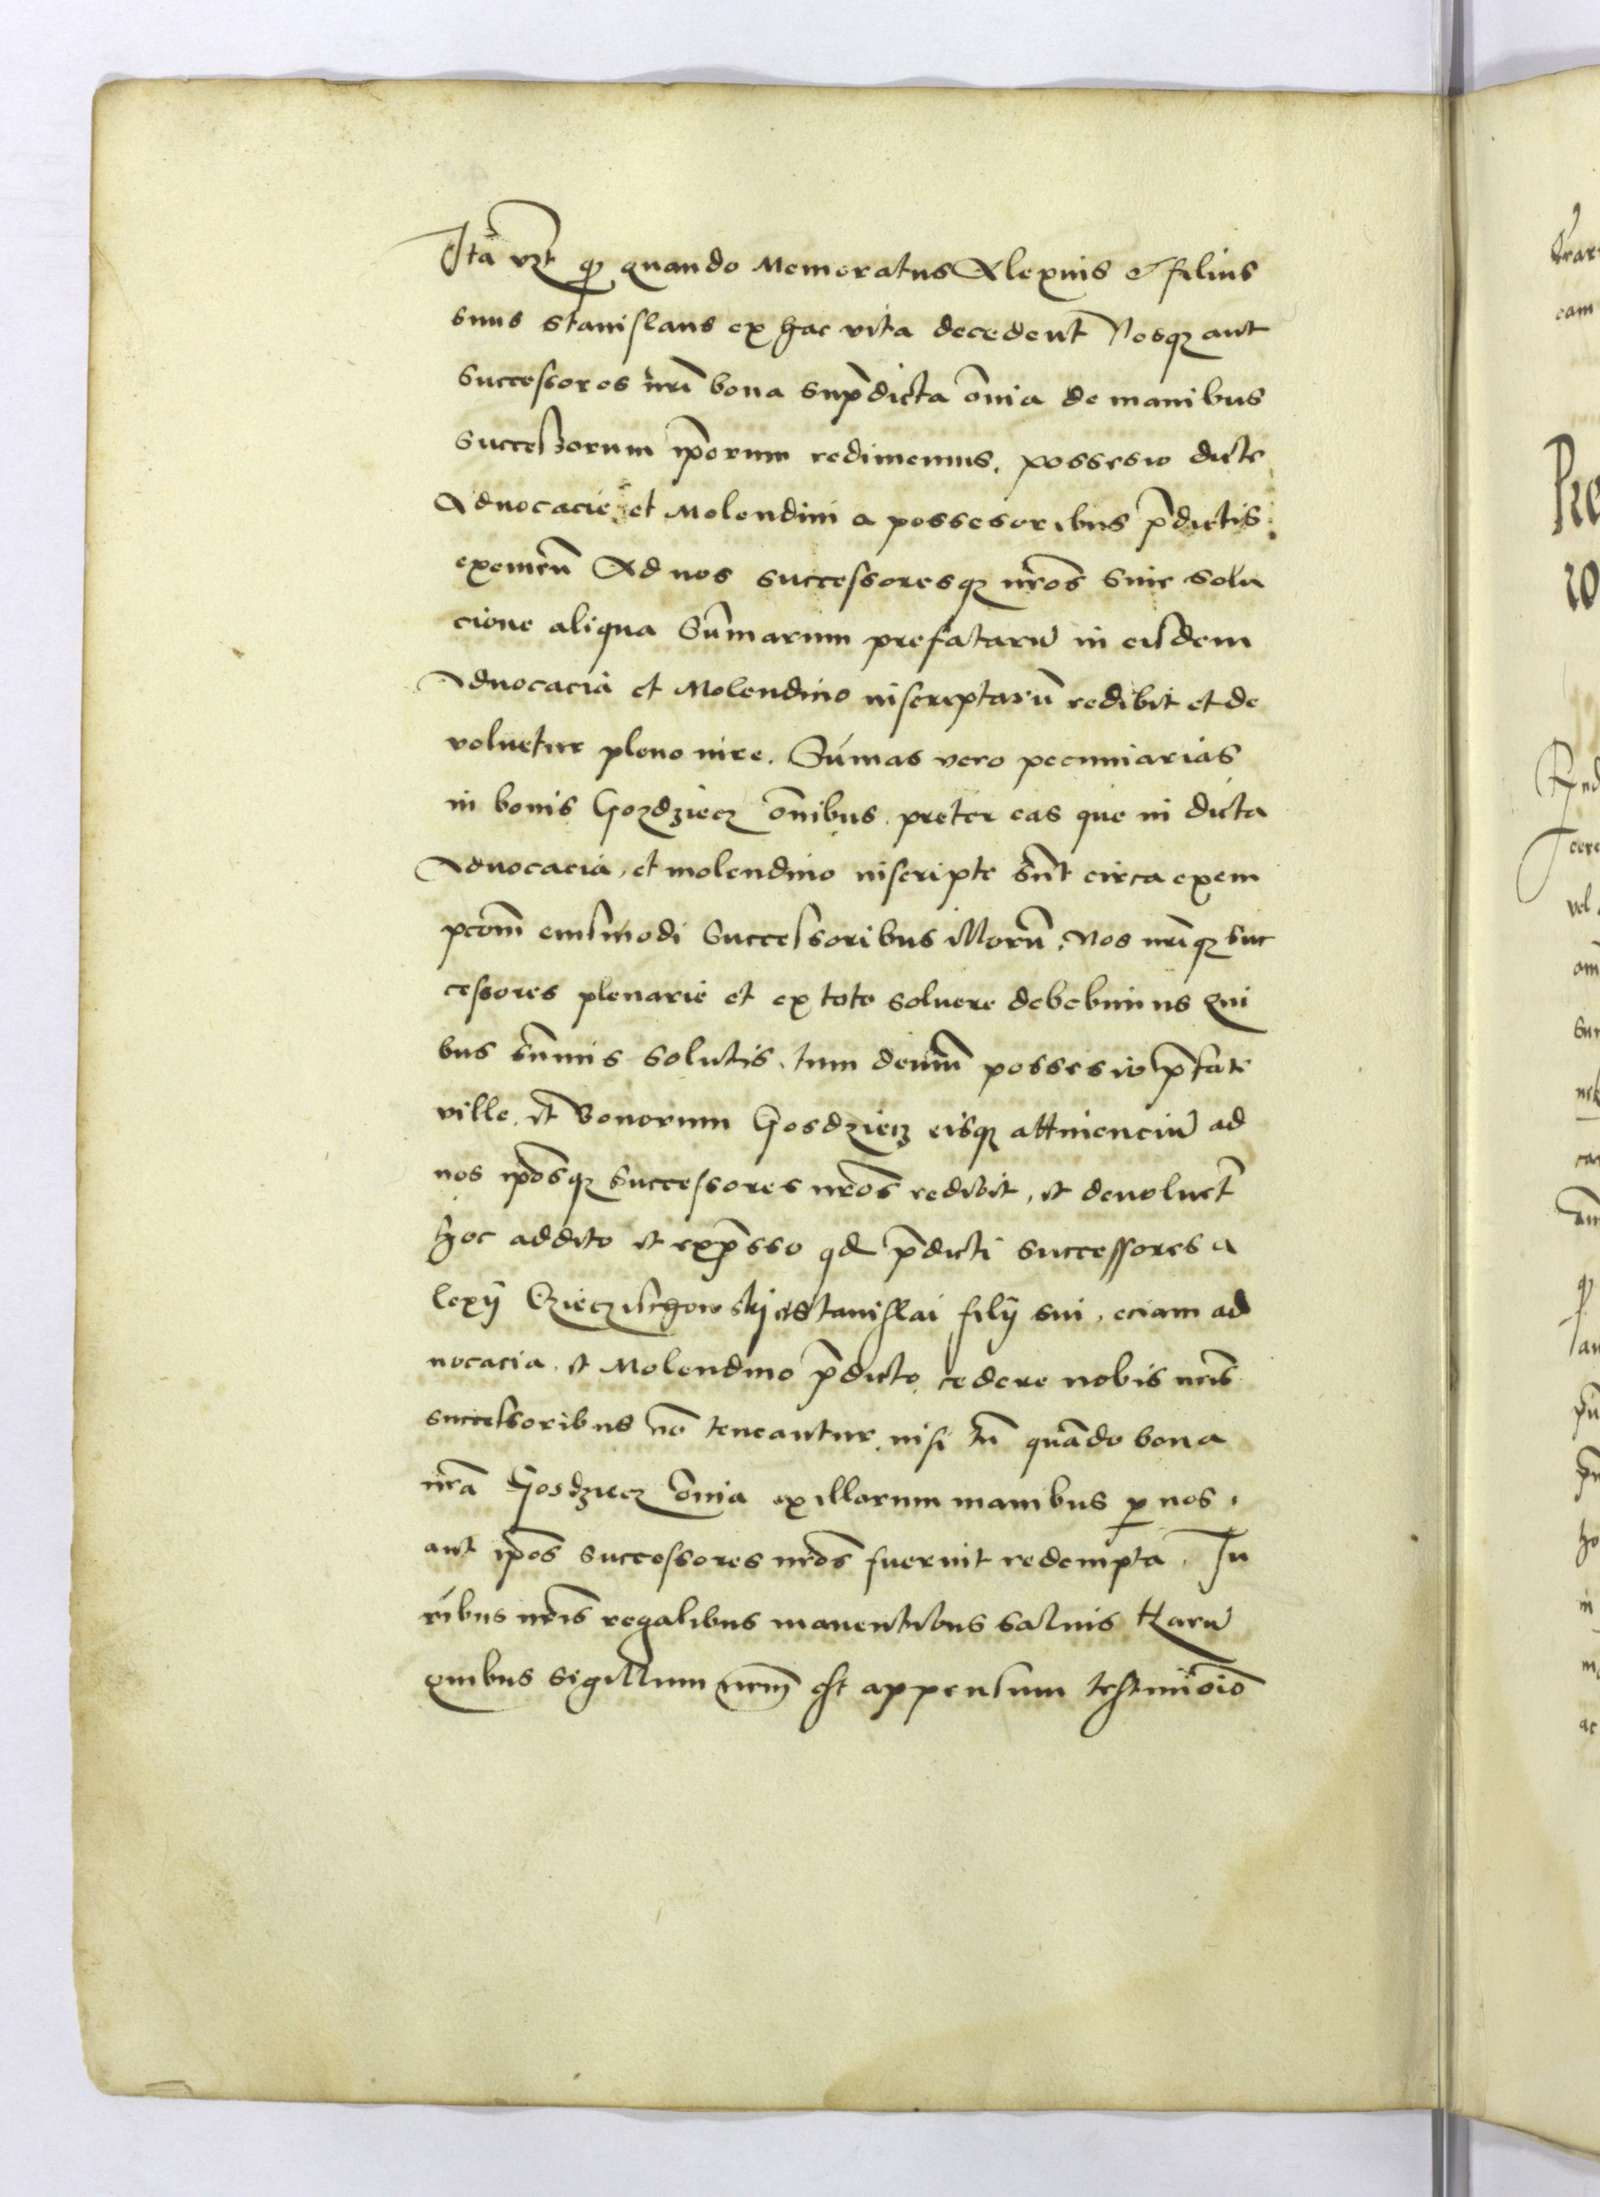 Ita vzt qz quando Memoratus Alexius et filius
suus Stanislaus ex hac vita decedent Nosqz aut
Successores nr̄i bona sup̄dicta om̄ia de manibus
Successorum ip̄orum redimemus. possessio dicte
Aduocacie et Molendini a possessoribus p̄dictis
Ad nos successoresqz nr̄os sine solu
cione aliqua Sum̄arum prefatarū in eisdem
Aduocacia et Molendino inscriptarū redibit et de
voluetur pleno iure. Sum̄as vero pecuniarias
in bonis Gozdziecz om̄ibus preter eas que in dicta
Aduocacia, et molendino inscripte sūnt circa exem
pcōm eiusmodi Successoribus illorū. Nos nr̄iqz suc
cessores plenarie et ex toto soluere debebimus Qui
bus sum̄is solutis. tum demū possessio p̄fate
ville. et bonorum Gosdziecz eisqz attinenciū ad
nos ip̄osqz successores nr̄os redibit, et deuoluet̄
hoc addito et exp̄sso qd p̄dicti successores A
lexij Czieczischowskj et Stanislai filij sui, eciam ad
uocacia. et Molendino p̄dicto cedere nobis nr̄is
successoribus nō teneantur nisi tū quādo bona
nr̄a Gosdziecz om̄ia ex illorum manibus p nos.
aut ip̄os successores nr̄os fuerint redempta. Iu
ribus nr̄is regalibus manentibus saluis Harū
quibus sigillum nr̄m est appensum testimōiō